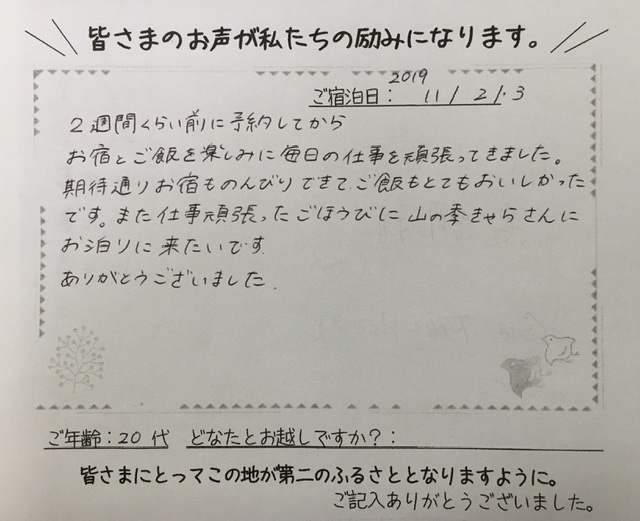 皆さまのお声が私たちの励みになります。
2019
ご宿泊日： 11/ 2/.3
2週間くらい前に予約してから
お宿とご飯を楽しみに毎日の仕事を頑張ってきました。
期待通りお宿ものんびりできて、ご飯もとてもおいしかった
です。また仕事頑張ったごほうびに 山の季きゃらさんに
お泊りに来たいです
ありがとうございました.
ご年齢：20代 どなたとお越しですか？：
皆さまにとってこの地が第二のふるさととなりますように。
ご記入ありがとうございました。